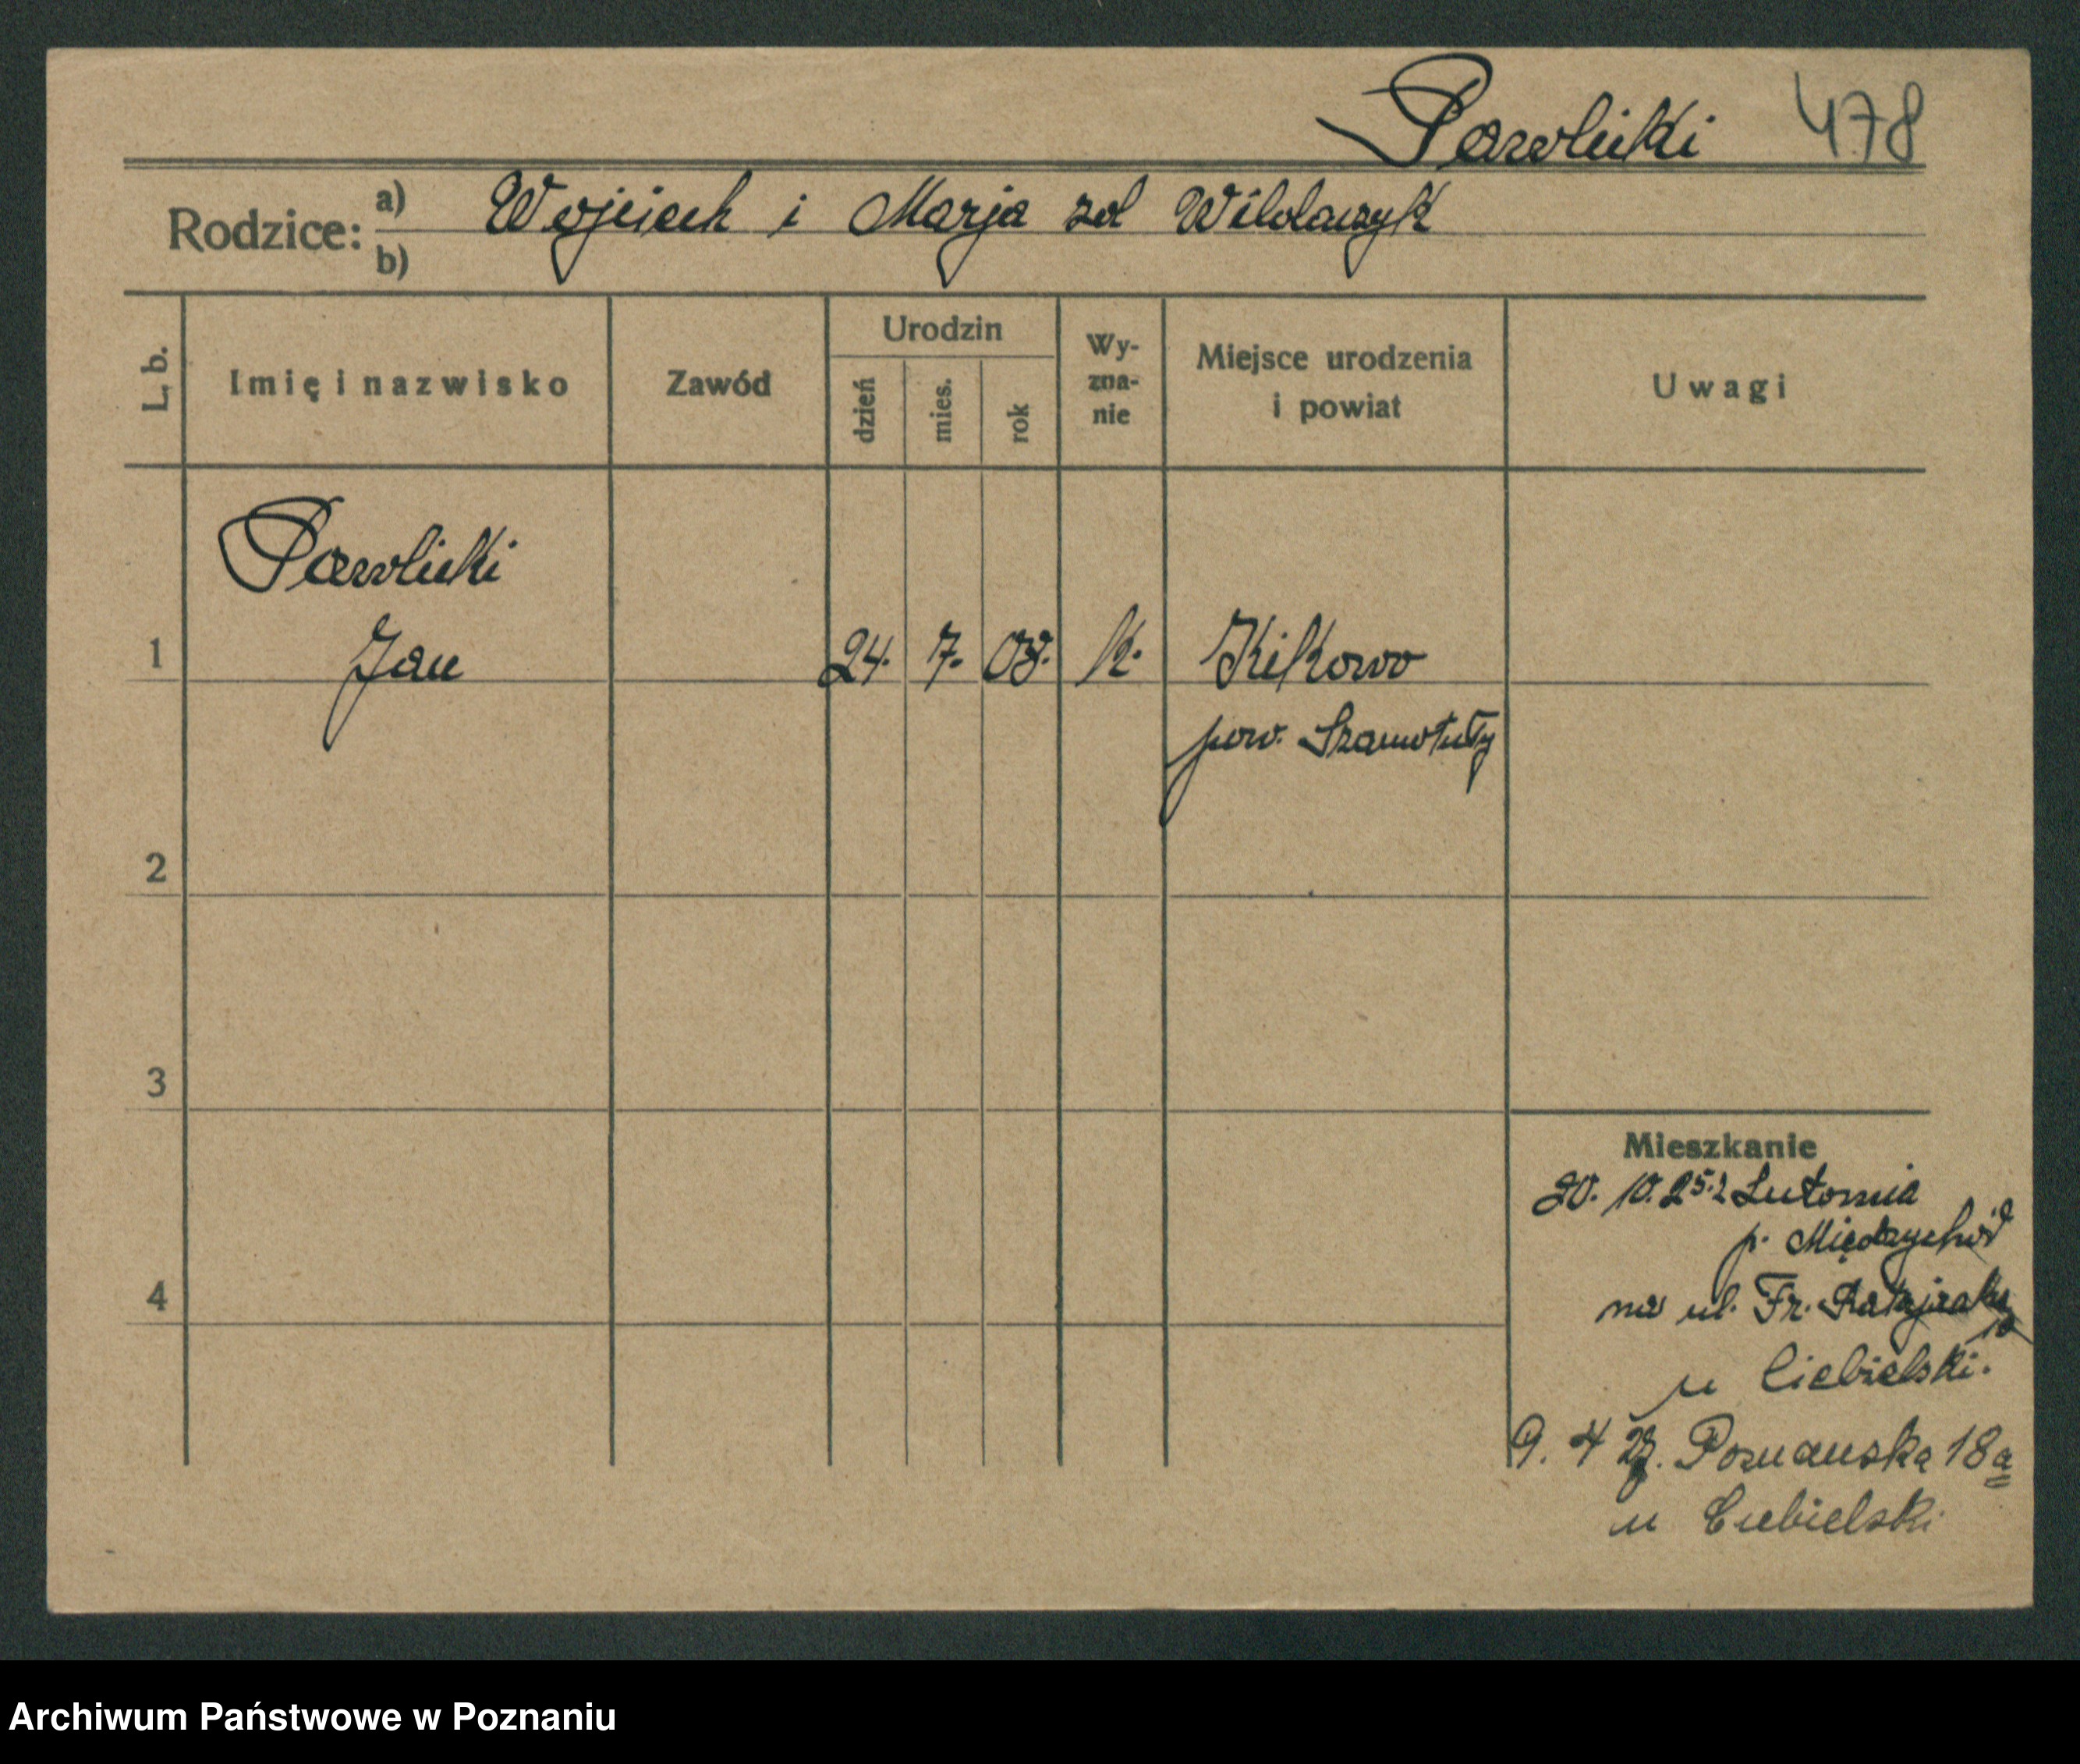 Pawlicki 478
Rodzice: a) Wojciech i Marja zd
b)
L. b. Imię i nazwisko Zawód Urodzin dzień mies. rok Wy-zna-nie Miejsce urodzenia i powiat Uwagi
Pawlicki
1 Jan 24. 7. 03. k. Kikowo
pow. Szamotuły
2
3
Mieszkanie
20. 10. 25. z Lutomia
p. Międzychód
4
na ul. Fr. Ratajczaka
u
9. 4 Poznańska 18a
u
Archiwum Państwowe w Poznaniu